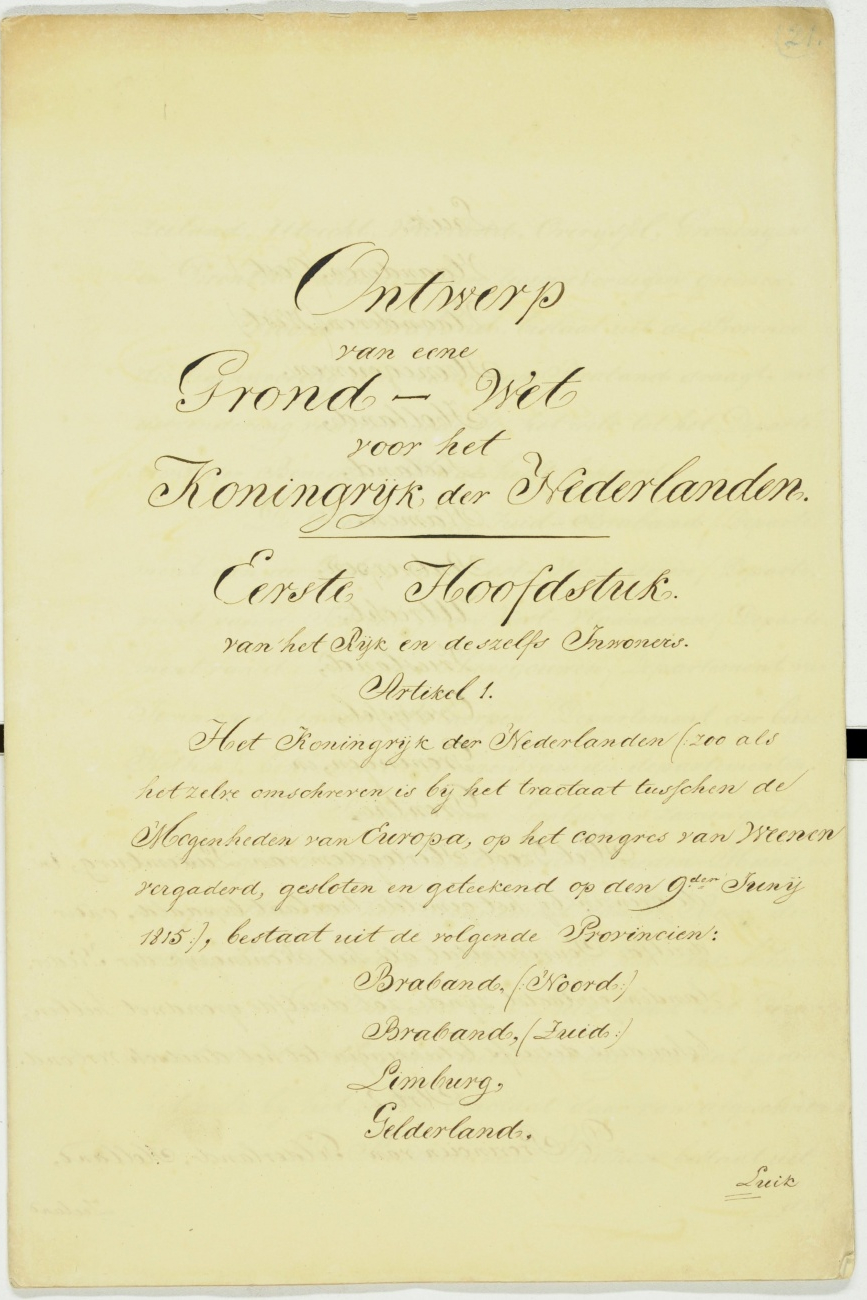 21.
Ontwerp
van eene
Grond – Wet
voor het
Koningrijk der Nederlanden.
Eerste Hoofdstuk.
van het Rijk en deszelfs Inwoners.
Artikel 1.
Het Koningrijk der Nederlanden (: zoo als
hetzelve omschreven is bij het tractaat tusschen de
Mogenheden van Europa, op het congres van Weenen
vergaderd, gesloten en geteekend op den 9den Junij
1815:), bestaat uit de volgende Provincien:
Braband, (: Noord:)
Braband, (Zuid:)
Limburg,
Gelderland.
Luik